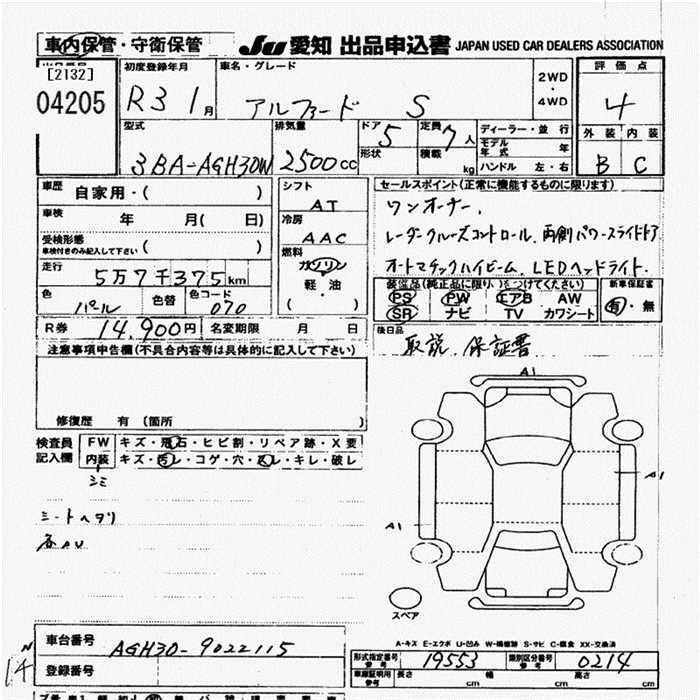 車内保管・守衛保管 JU 愛知 出品申込書 JAPAN USED CAR DEALERS ASSOCIATION
[2132]
04205
初度登録年月
R3 1月
車名・グレード
アルファード S
2WD
・
4WD
評価点
4
外装 内装
B C
型式
3BA-AGH30W
排気量
2500cc
ドア 5
形状
定員 7人
積載 kg
ディーラー・並行
モデル年式 年
ハンドル 左・右
車歴 自家用・( )
車検 年 月( 日)
受検形態
車検付きのみ記入して下さい ( )
走行 5万7千375km
色 パール
色替
色コード 070
シフト
AT
冷房
AAC
燃料
ガソリン
軽・油
( )
セールスポイント(正常に機能するものに限ります)
ワンオーナー、
レーダークルーズコントロール、両側パワースライドドア
オートマチックハイビーム、LEDヘッドライト、
装備品(純正品に限り、)をつけてください
PS PW エアB AW
SR ナビ TV カワシート
新車保証書
有・無
R券 14,900円 名変期限 月 日
後日品
取説、保証書
注意事項申告欄(不具合内容等は具体的に記入して下さい)
修復歴 有 (箇所
検査員記入欄
FW キズ・飛石・ヒビ割・リペア跡・X要
内装 キズ・汚レ・コゲ・穴・スレ・キレ・破レ
シミ
シートヘタリ
各AU
A1
A1
A1
スペア
A-キズ E-エクボ U-凹み W-補修跡 S-サビ C-腐食 XX-交換済
車台番号 AGH30-9022115
登録番号
型式指定番号
参考
19553
類別区分番号
参考
0214
車庫証明用
参考
長さ cm 幅 cm 高さ cm